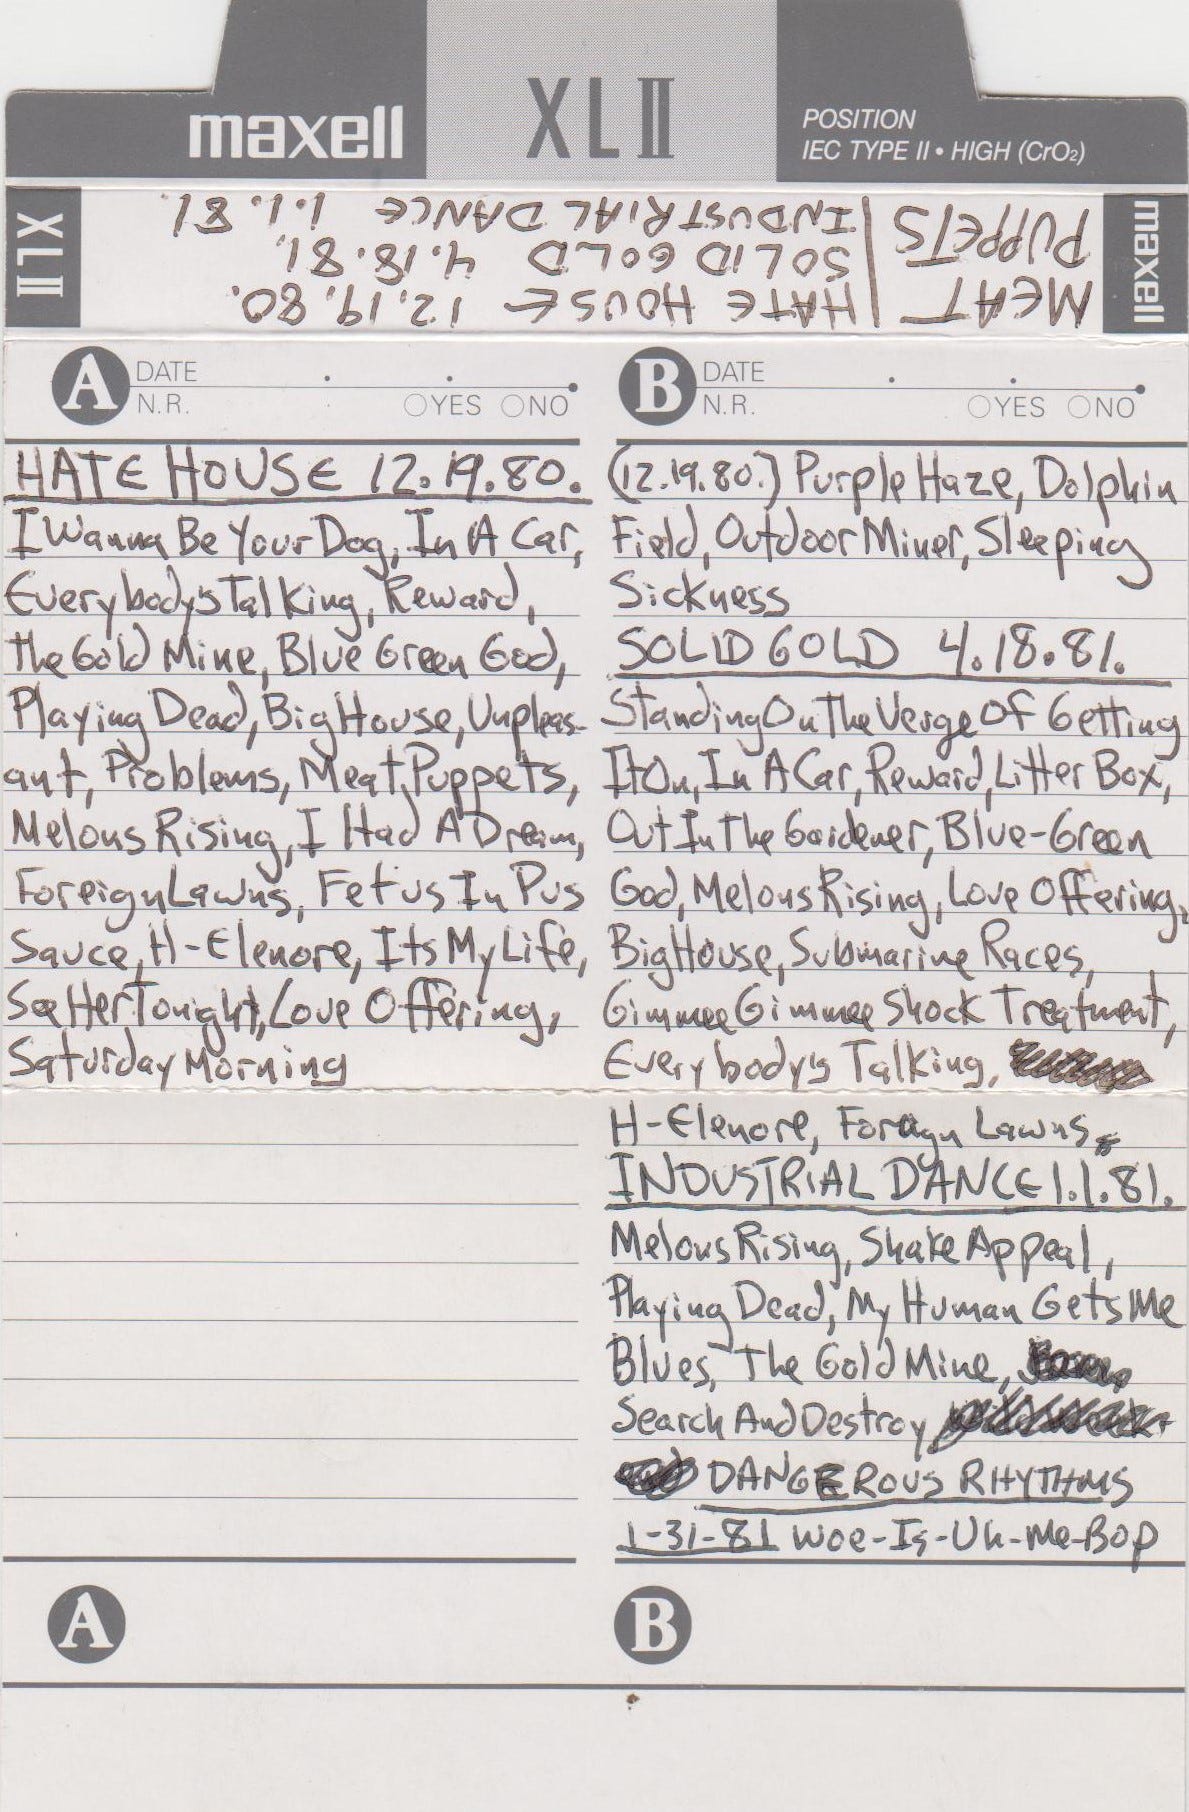 maxell XLII POSITION
IEC TYPE II • HIGH (CrO2)
XLII
maxell
MEAT PUPPETS
HATE HOUSE 12.19.80.
SOLID GOLD 4.18.81.
INDUSTRIAL DANCE 1.1.81
A DATE
N.R. YES NO
HATE HOUSE 12.19.80.
I Wanna Be Your Dog, In A Car,
Everybody's Talking, Reward,
The Gold Mine, Blue Green God,
Playing Dead, Big House, Unpleas-
ant, Problems, Meat Puppets,
Melons Rising, I Had A Dream,
Foreign Lawns, Fetus In Pus
Sauce, H-Elenore, Its My Life,
See Her Tonight, Love Offering,
Saturday Morning
A
B DATE
N.R. YES NO
(12.19.80.) Purple Haze, Dolphin
Field, Outdoor Miner, Sleeping
Sickness
SOLID GOLD 4.18.81.
Standing On The Verge Of Getting
It On, In A Car, Reward, Litter Box,
Out In The Gardener, Blue-Green
God, Melons Rising, Love Offering,
Big House, Submarine Races,
Gimmee Gimmee Shock Treatment,
Everybody's Talking,
H-Elenore, Foreign Lawns
INDUSTRIAL DANCE 1.1.81.
Melons Rising, Shake Appeal,
Playing Dead, My Human Gets Me
Blues, The Gold Mine,
Search And Destroy
DANGEROUS RHYTHMS
1-31-81 Woe-Is-Uh-Me-Bop
B